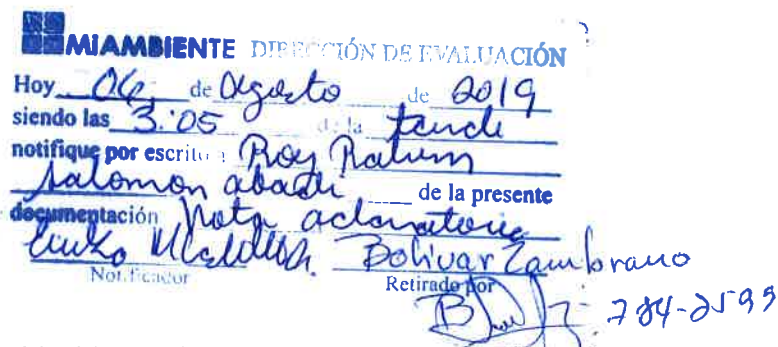 MIAMBIENTE DIRECCIÓN DE EVALUACIÓN
Hoy 06 de Agosto de 2019
siendo las 3:05 de la tarde
notifique por escrito a Roy
Salomon abadi de la presente
documentación Nota aclaratoria
Bolivar Zambrano
Notificador Retirado por
784-2599